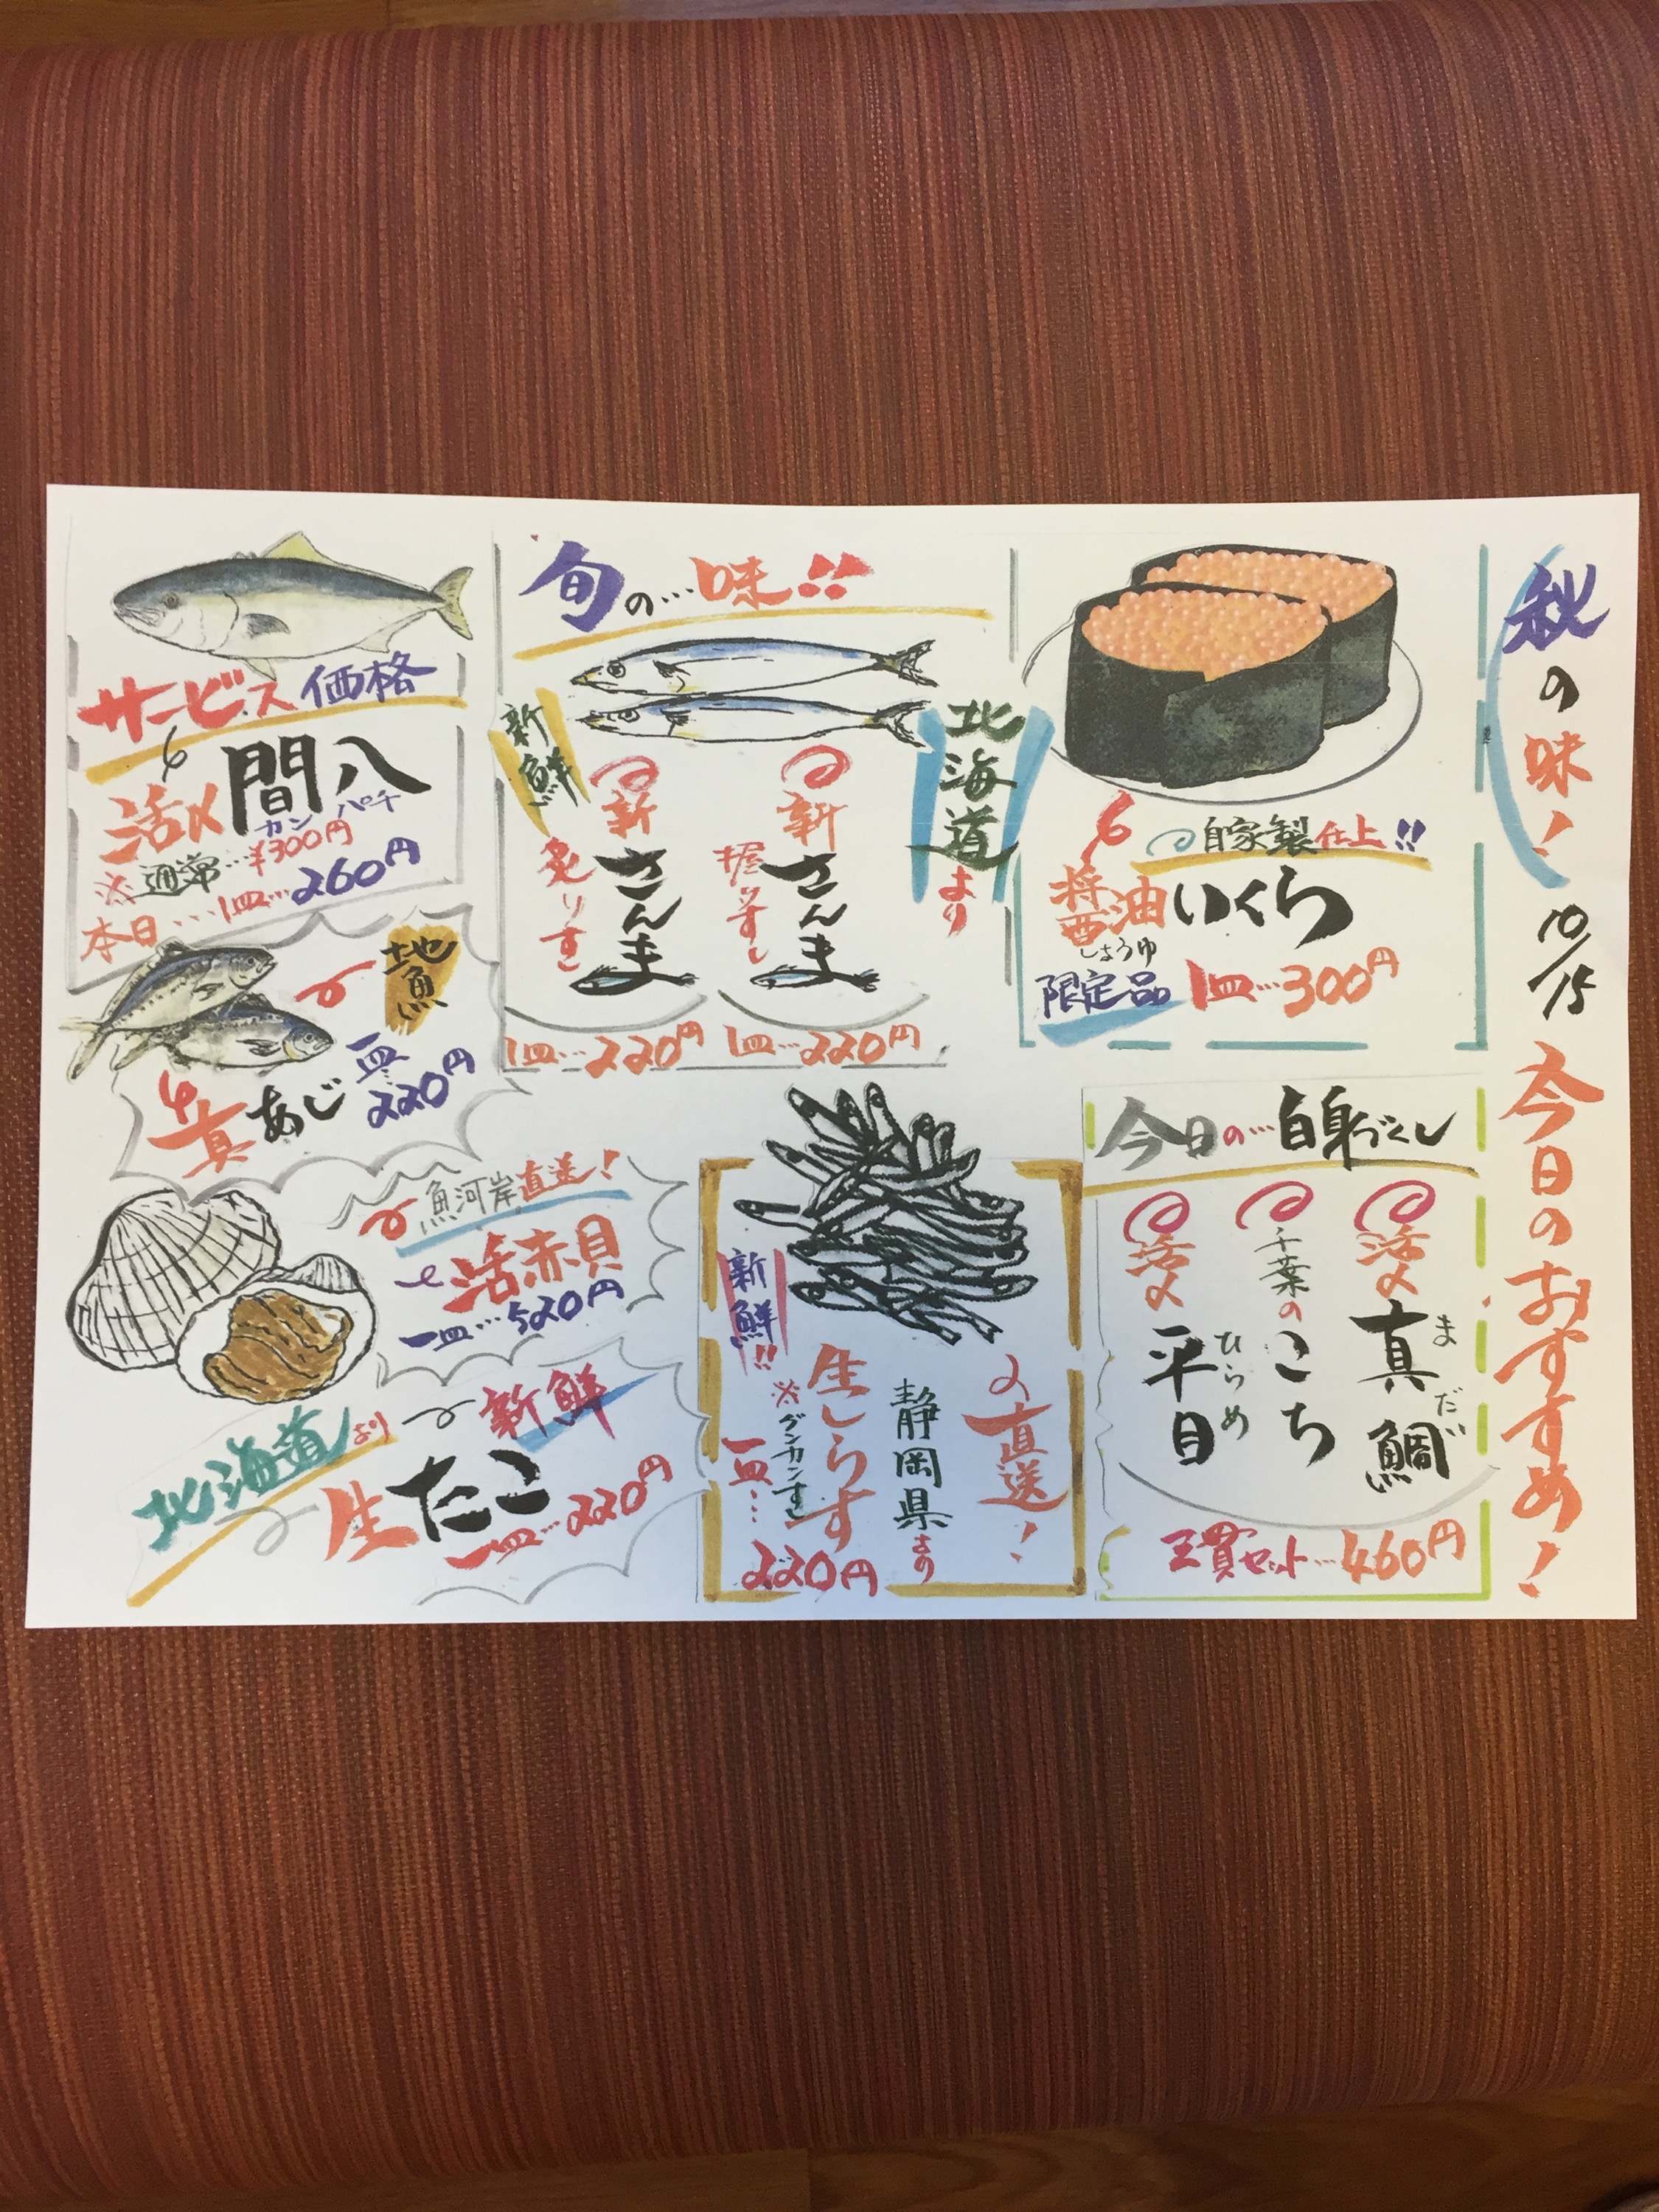 秋の味!
10/15
今日のおすすめ!
自家製仕上!!
醤油いくら
しょうゆ
限定品 1皿…300円
旬の…味!!
北海道より
新鮮
新さんま
握りすし
1皿…220円
新さんま
炙りすし
1皿…220円
サービス価格
活〆間八
カンパチ
※通常…¥300円
本日…1皿…260円
地魚
真あじ
一皿…220円
今日の…白身づくし
活〆真鯛
まだい
千葉のこち
活〆平目
ひらめ
三貫セット…460円
直送!
静岡県より
生しらす
※グンカンすし
新鮮!!
一皿…220円
魚河岸直送!
活赤貝
一皿…520円
北海道より
新鮮
生たこ
一皿…220円